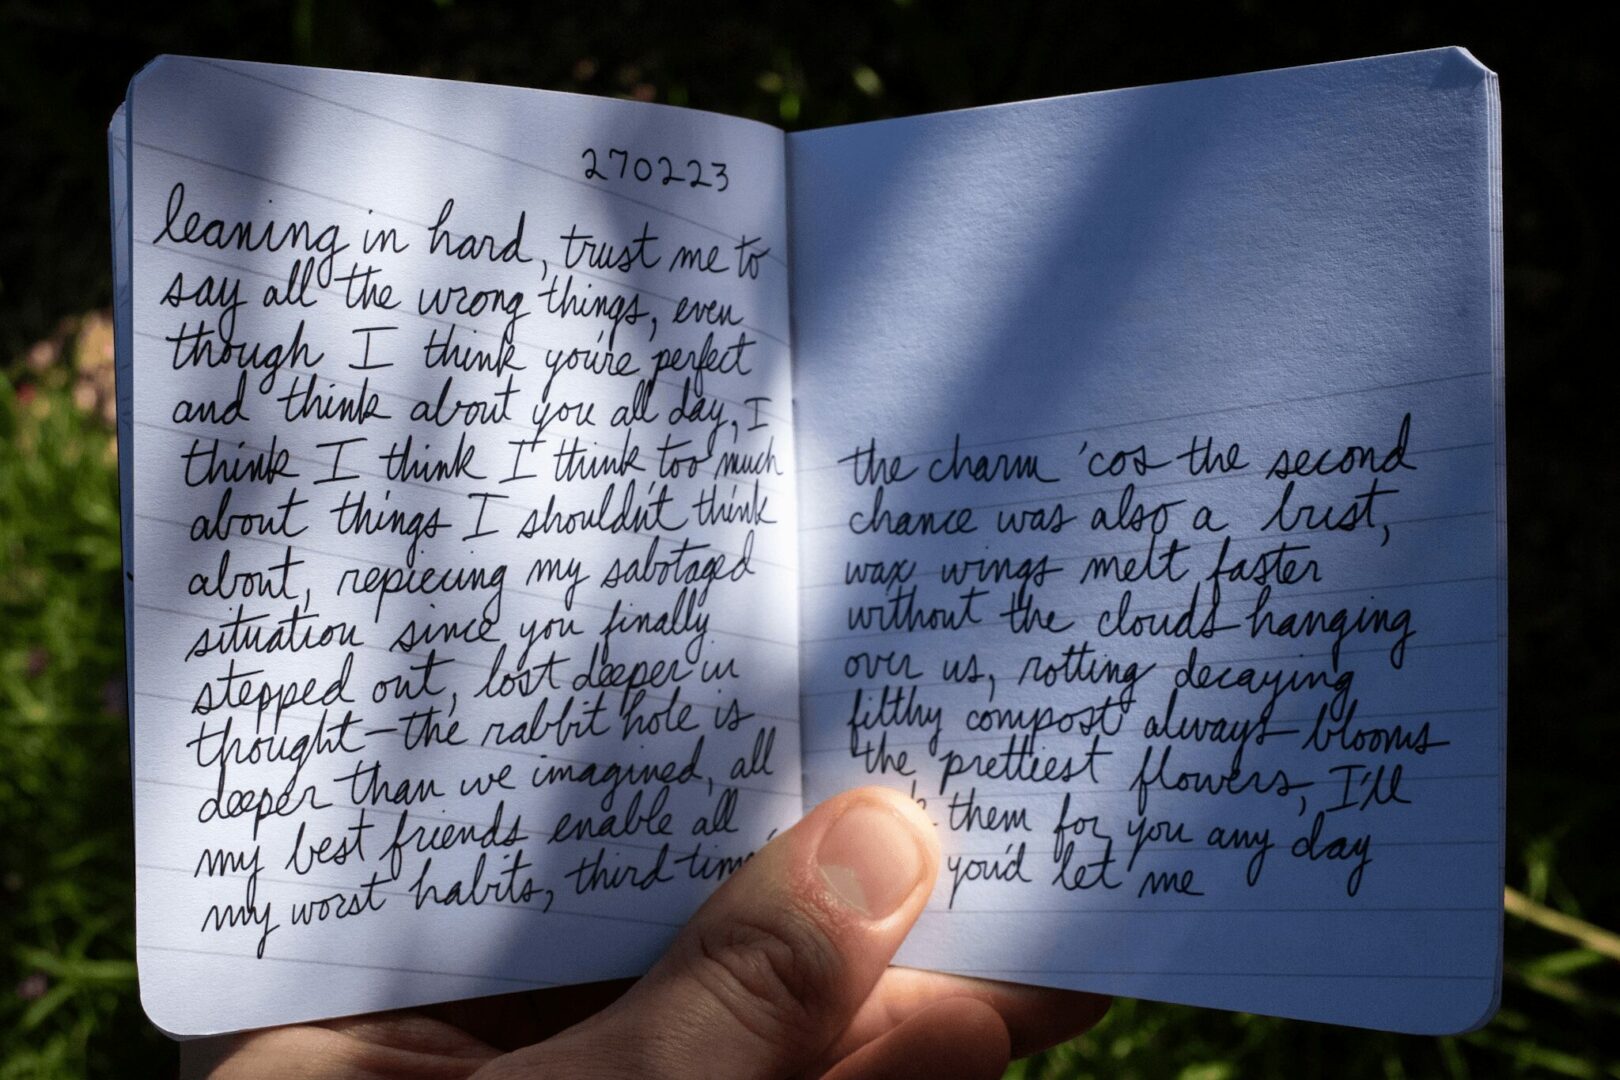 270223
leaning in hard, trust me to
say all the wrong things, even
though I think you're perfect
and think about you all day, I
think I think I think too much
about things I shouldn't think
about, repiecing my sabotaged
situation since you finally
stepped out, lost deeper in
thought—the rabbit hole is
deeper than we imagined, all
my best friends enable all
my worst habits, third
the charm 'cos the second
chance was also a bust,
wax wings melt faster
without the clouds hanging
over us, rotting decaying
filthy compost always blooms
the prettiest flowers, I'll
them for you any day
you'd let me